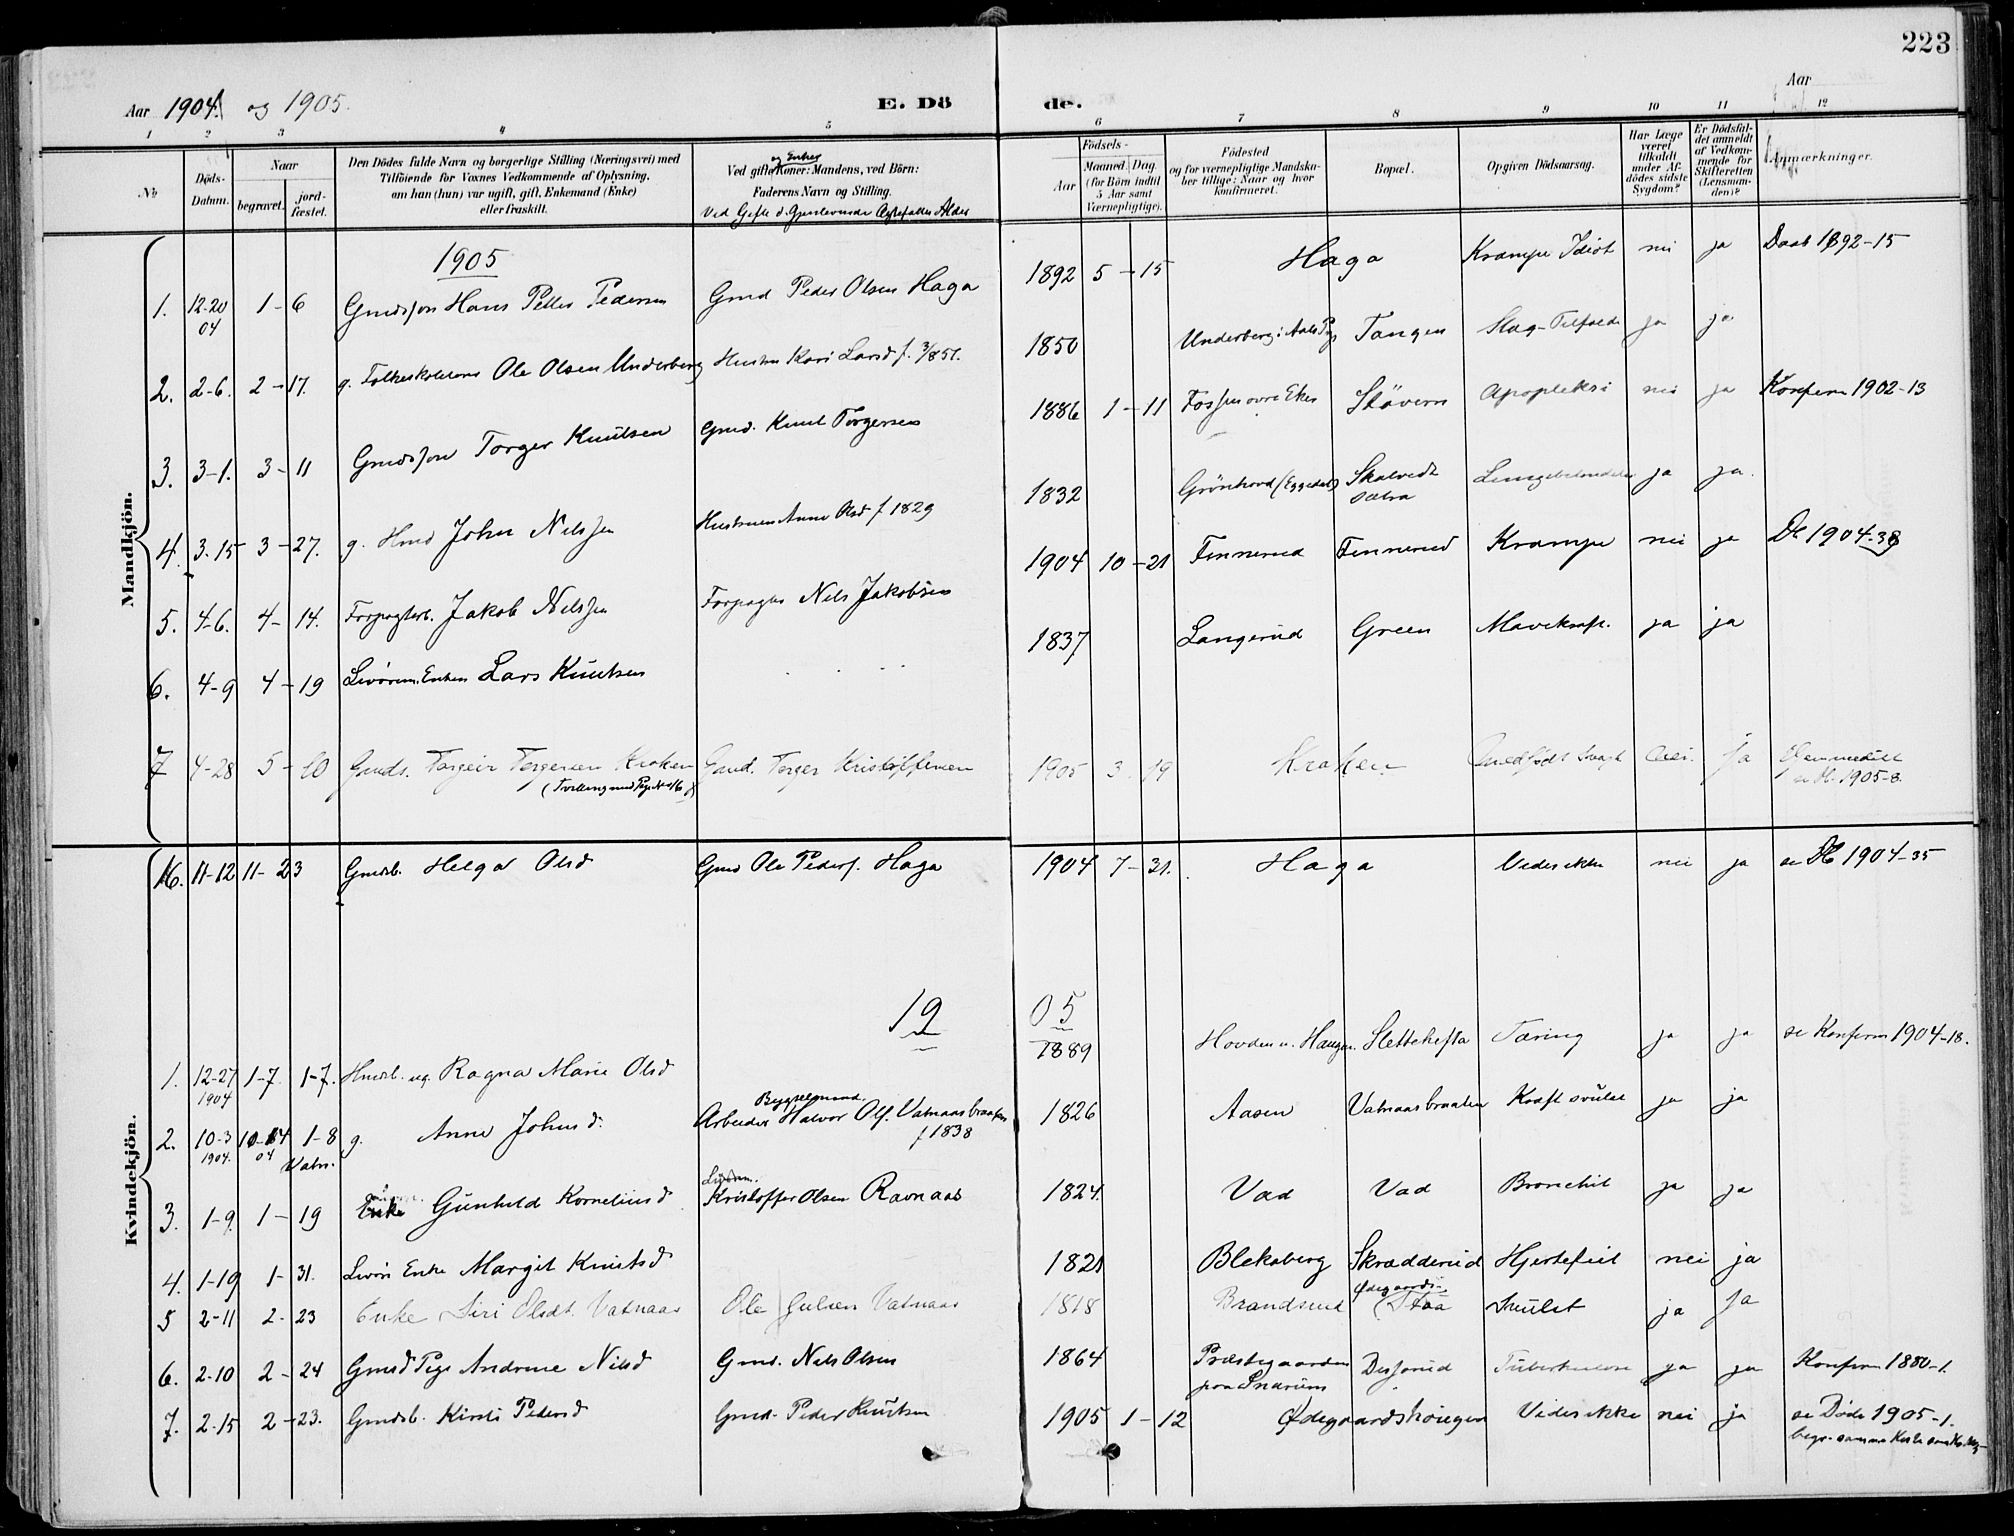 223
Aar 1904 og 1905. E. Dö de. Aar
1 2 3 4 5 6 7 8 9 10 11 12
No
Döds-Datum.
Naar
begravet. jord-fæstet.
Den Dödes fulde Navn og borgerlige Stilling (Næringsvei) med
Tilföiende for Voxnes Vedkommende af Oplysning,
om han (hun) var ugift, gift, Enkemand (Enke)
eller fraskilt.
og Enker
Ved gifte Koner: Mandens, ved Börn:
Faderens Navn og Stilling.
Ved Gifte d. Gjenlevende Ægtefælles Alder
Födsels-
Aar Maaned. Dag.
(for Börn indtil
5 Aar samt
Værnepligtige).
Födested
og for værnepligtige Mandska-
ber tillige: Naar og hvor
konfirmeret.
Bopæl.
Opgiven Dödsaarsag.
Har Læge
været
tilkaldt
under Af-
dödes sidste
Sygdom?
Er Dödsfal-
det anmeldt
af Vedkom-
mende for
Skifteretten
(Lensman-
den)?
Anmærkninger.
Mandkjön.
1905
1. 12-20 04 1-6 Gmdssøn Hans Petter Pedersen Gmd Peder Olsen Haga 1892 5-15 Haga Krampe Idiot nei ja Daab 1892-15
2. 2-6. 2-17. g. Folkeskolelærer Ole Olsen Underberg Hustru Kari Larsd f. 3/8 51. 1850 Underberg i Aals Pgj Tangen Slag-Tilfælde ja ja
3. 3-1. 3-11 Gmdssøn Torger Knutsen Gmd. Knut Torgersen 1886 1-11 Fossen øvre Eker Støvern Apopleksi nei ja Konfirm 1902-13
4. 3.15 3-27. g. Hmd John Nilssen Hustruen Anne Olsd f. 1829 1832 Grönhovd (Eggedal) Skalvedt sætra Lungebetændelse ja ja.
5. 4-6. 4-14. Forpagterb. Jakob Nilssen Forpagter Nils Jakobsen 1904 10-21 Finnerud Finnerud Krampe nei ja Db 1904-38
6. 4-9 4-19 Livørem. Enkem Lars Knutsen 1837 Langerud Green Mavekræft. ja ja
7 4-28 5-10 Gmds. Torgeir Torgersen Kroken Gmd. Torger Kristoffersen 1905 3.19 Kroken Medfödt Svagh nei. ja Hjemmedöbt
(Tvilling med Pige No 16) se Db. 1905-8.
Kvindekjön.
16. 11-12 11-23 Gmdsb. Helga Olsd Gmd Ole Peders. Haga 1904 7-31. Haga Vides ikke nei ja se Db 1904-35
1905
1. 12-27 1904 1-7. 1-7. Hmdsb. ug. Ragna Marie Olsd 1889 Hovden u. Haugen. Slettehefta Tæring ja ja se Konfirm 1904-18.
2. 10-3 1904. 10-14 04 1-8 Vatn. g. Anne Johnsd. Bygselmand. Arbeider Halvor Ols. Vatnaasbraaten f 1838 1826 Aasen Vatnaasbraaten Kræftsvülst ja ja
3. 1-9. 1-19 Enke Gunhild Korneliusd Livørem. Kristoffer Olsen Ravnaas 1824. Vad Vad Bronchit ja ja
4. 1-19 1-31. Livørs Enke Margit Knutsd 1821 Blekeberg Skrædderud Hjertefeil nei ja
5 2-11 2-23 Enke Siri Olsdt. Vatnaas Ole Julsen Vatnaas 1818 Brandsrud Svulst ja ja
6. 2-10 2-24 Gmsd Pige Andrine Nilsd Gmd. Nils Olsen 1864 Præstegaarden paa Snarum Desserud Tuberkulose ja ja Konfirm 1880-1.
7. 2-15 2-23. Gmdsb. Kirsti Pedersd Gmd. Peder Knutsen 1905 1-12 Ødegaardshaugen Vides ikke nei ja se Døbte 1905-1.
begr. samme Kiste som